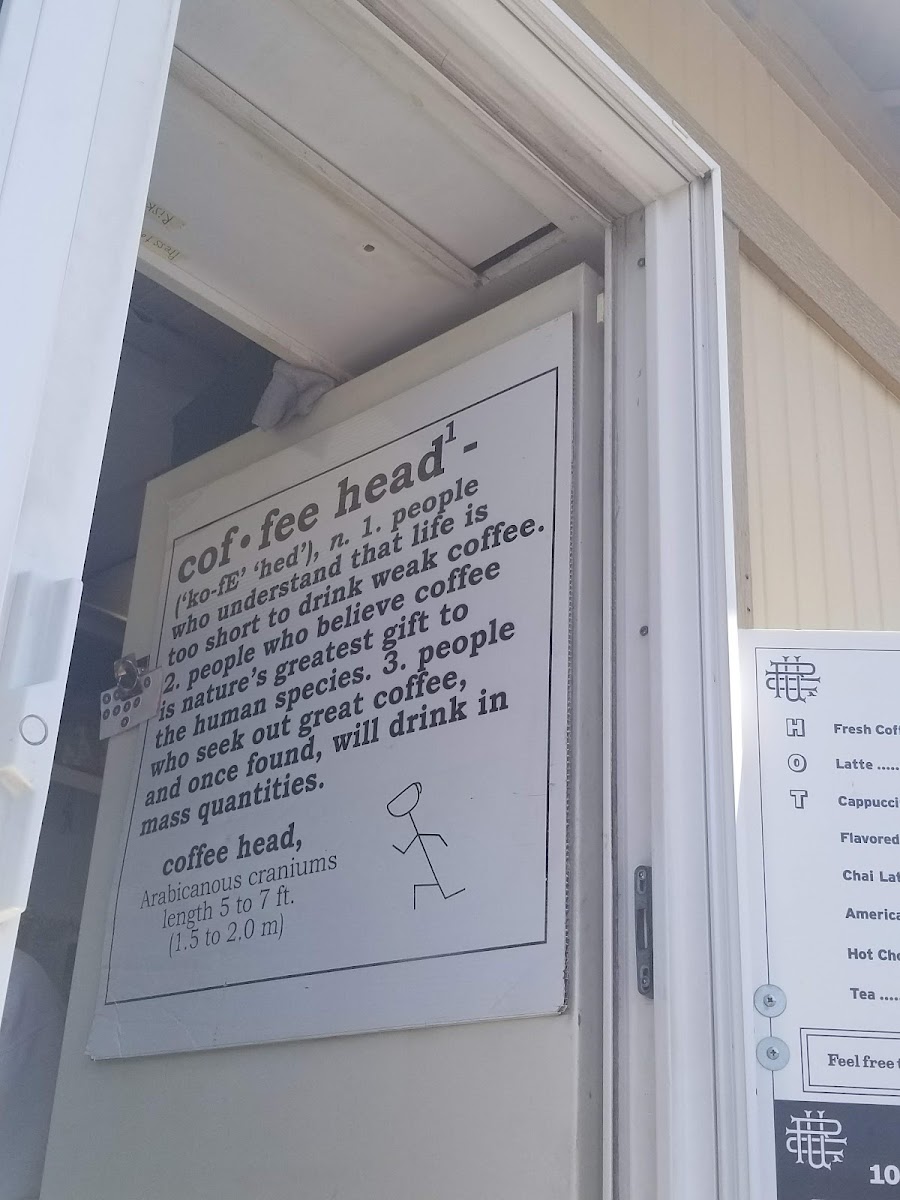 cof•fee head¹ -
('ko-fE' 'hed'), n. 1. people
who understand that life is
too short to drink weak coffee.
2. people who believe coffee
is nature's greatest gift to
the human species. 3. people
who seek out great coffee,
and once found, will drink in
mass quantities.
coffee head,
Arabicanous craniums
length 5 to 7 ft.
(1.5 to 2.0 m)
HOT
Fresh Cof
Latte .....
Cappucci
Flavored
Chai Lat
America
Hot Cho
Tea ....
Feel free
10